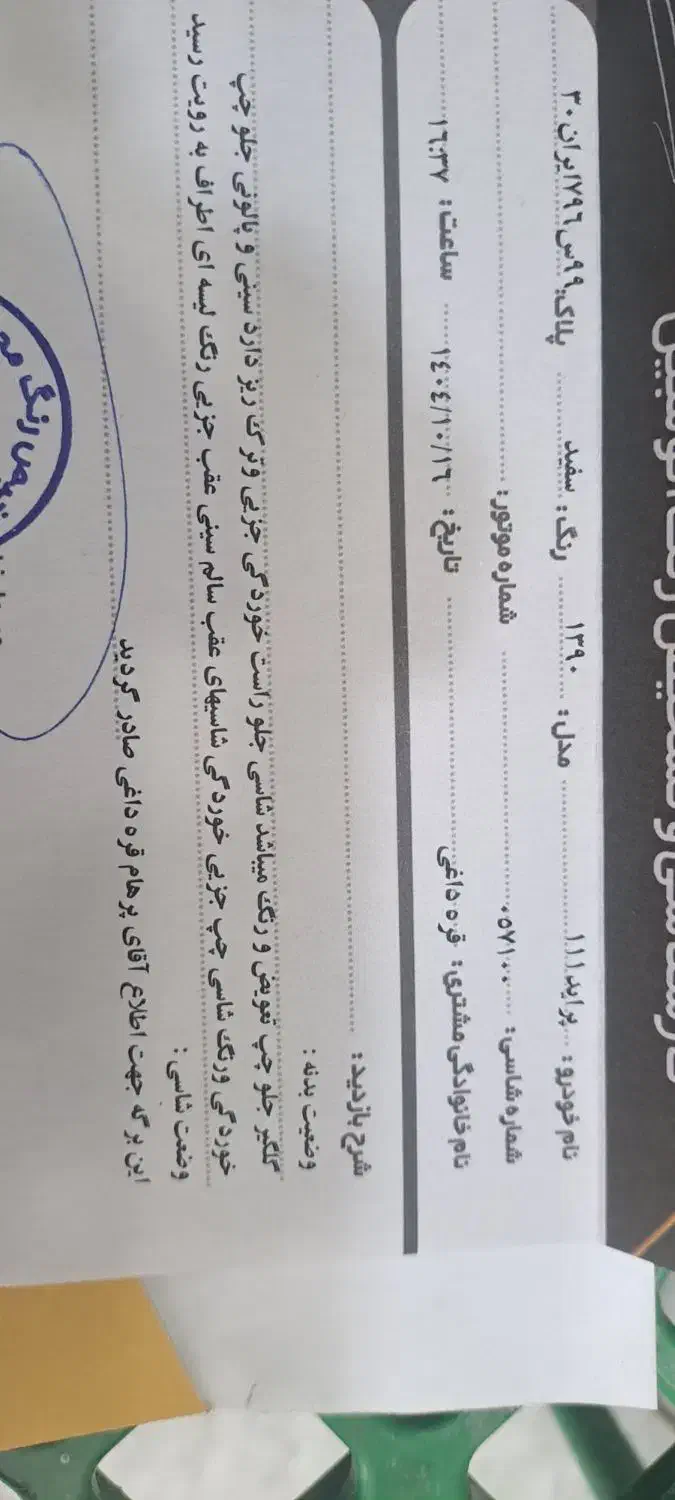 نام خودرو: پراید ۱۱۱ مدل: ۱۳۹۰ رنگ: سفید پلاک: ۹۹س۷۹۶ ایران۳۰
شماره شاسی: ۰۵۷۱۰۰ شماره موتور:
نام خانوادگی مشتری: قره داغی تاریخ: ۱۴۰۴/۱۰/۱۶ ساعت: ۱۶:۳۷
شرح بازدید:
وضعیت بدنه:
گلگیر جلو چپ تعویض و رنگ میباشد شاسی جلو راست خوردگی جزیی وترک ریز دارد سینی و پالونی جلو چپ
خوردگی ورنگ شاسی چپ جزیی خوردگی شاسیهای عقب سالم سینی عقب جزیی رنگ لیسه ای اطراف به رویت رسید
وضعت شاسی:
این برگه جهت اطلاع آقای پرهام قره داغی صادر گردید
رنگ